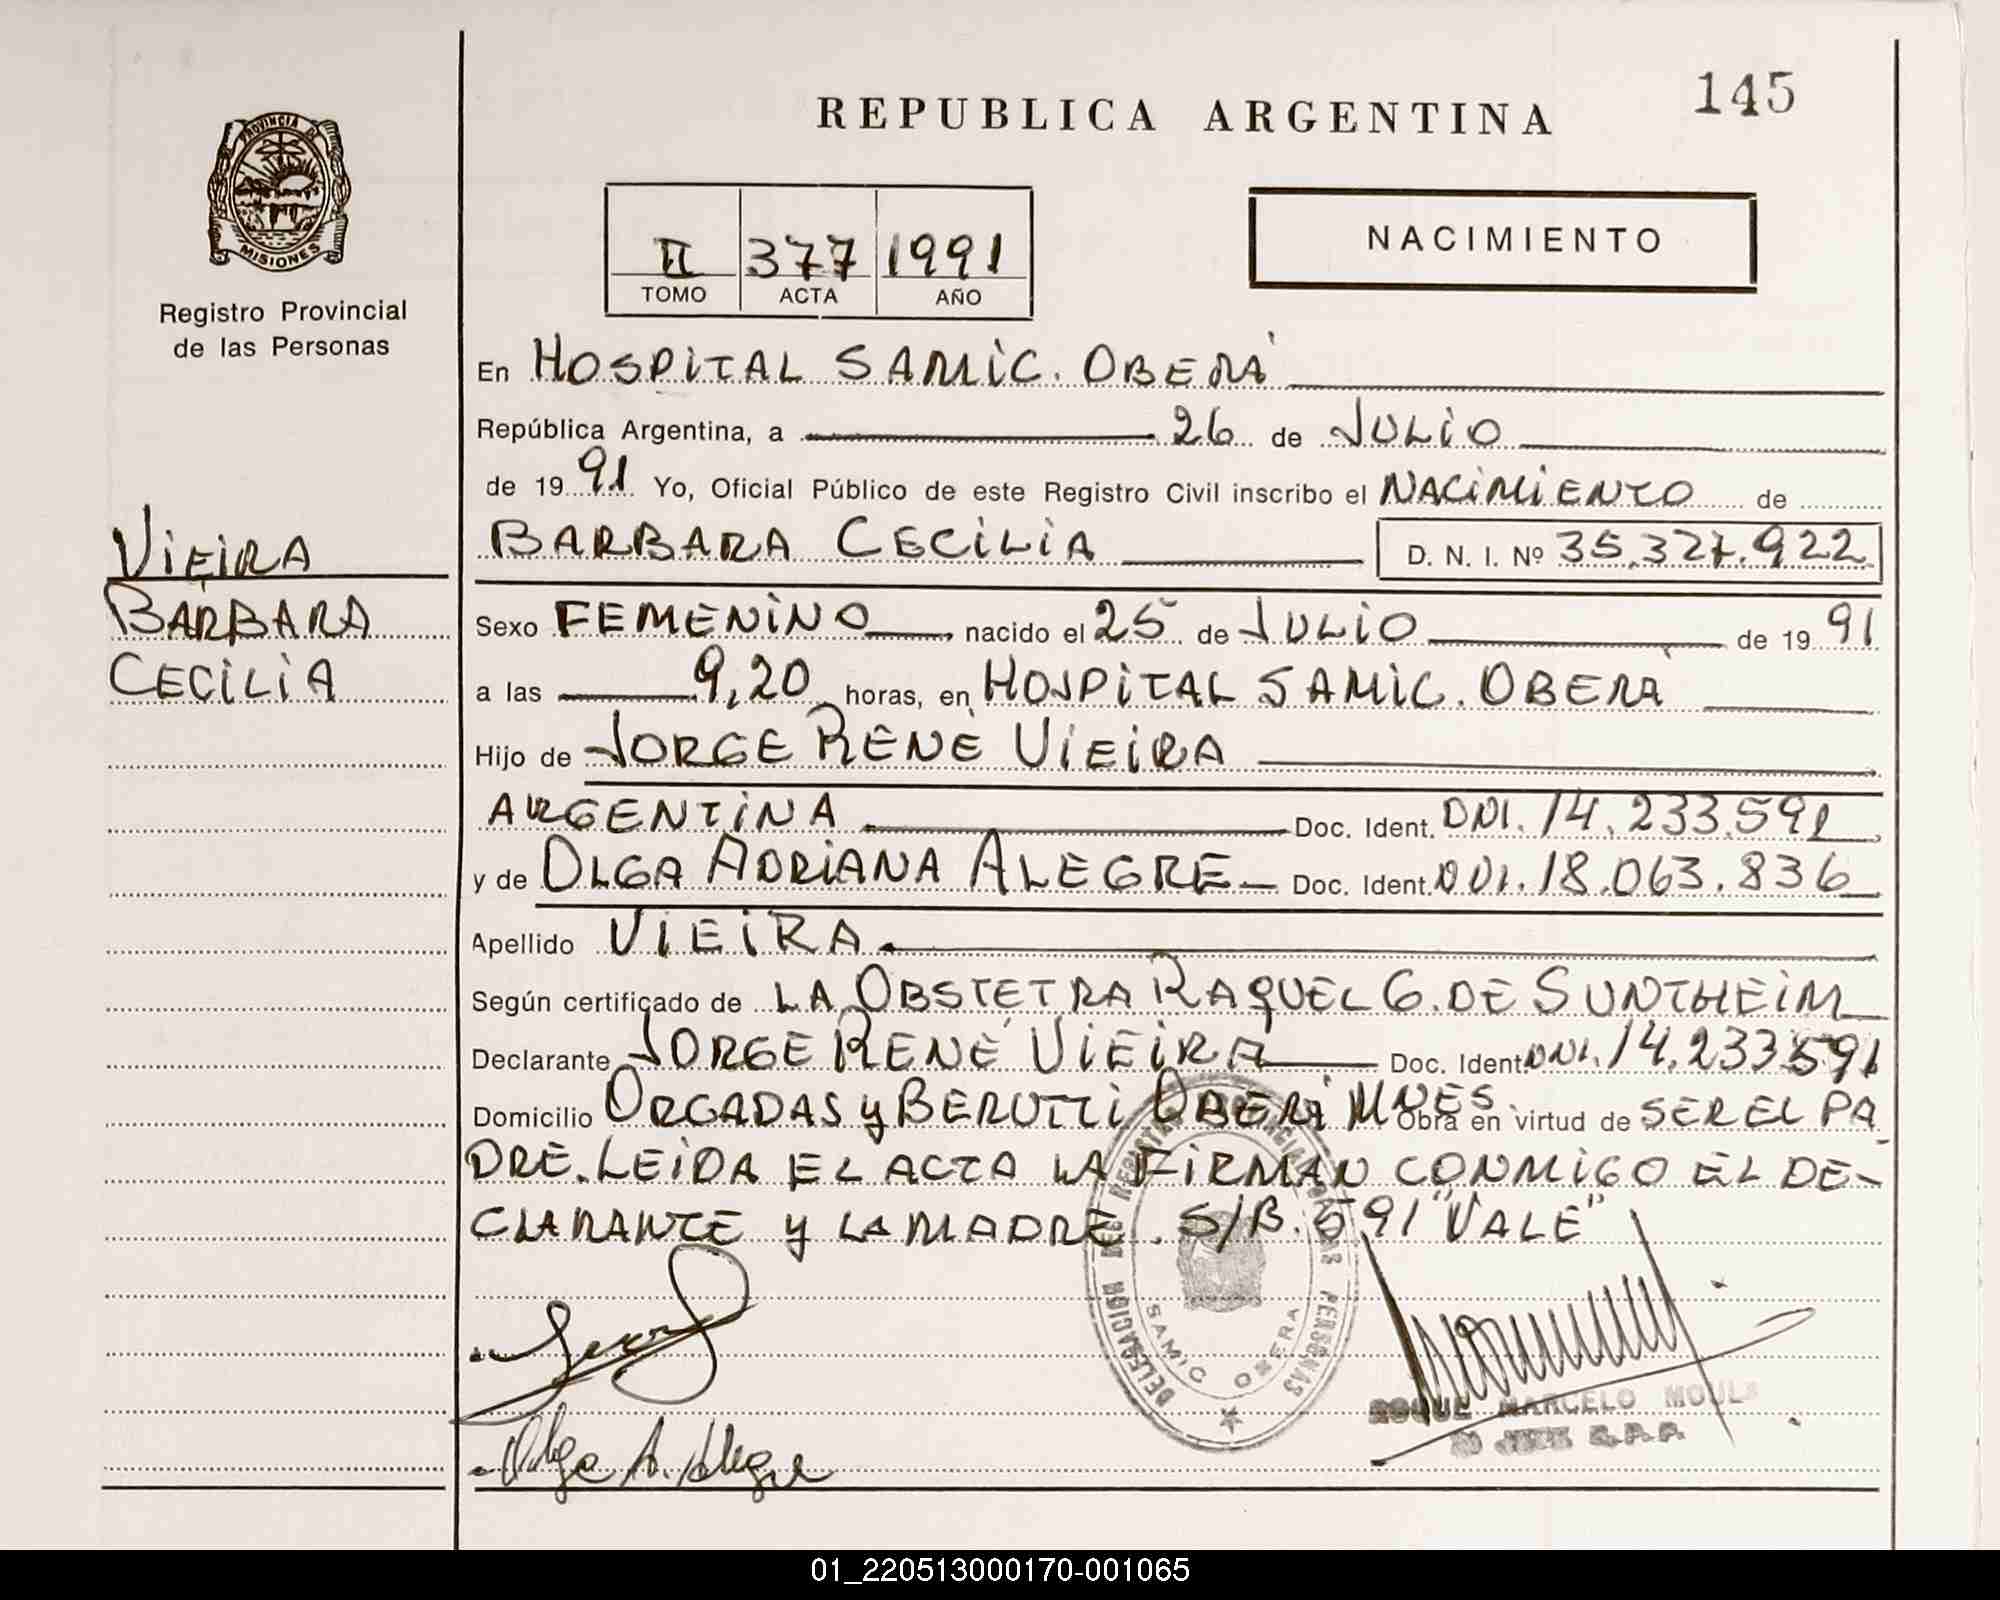 145
REPUBLICA ARGENTINA
PROVINCIA DE
MISIONES
Registro Provincial
de las Personas
II 377 1991
TOMO ACTA AÑO
NACIMIENTO
En HOSPITAL SAMIC. OBERÁ
República Argentina, a 26 de JULIO
de 1991 Yo, Oficial Público de este Registro Civil inscribo el NACIMIENTO de
BARBARA CECILIA D. N. I. Nº 35.327.922
VIEIRA
BARBARA
CECILIA
Sexo FEMENINO, nacido el 25 de JULIO de 1991
a las 9,20 horas, en HOSPITAL SAMIC. OBERA
Hijo de JORGE RENE VIEIRA
ARGENTINA Doc. Ident. DNI. 14.233.591
y de OLGA ADRIANA ALEGRE Doc. Ident. DNI. 18.063.836
Apellido VIEIRA
Según certificado de LA OBSTETRA RAQUEL G. DE SUNTHEIM
Declarante JORGE RENÉ VIEIRA Doc. Ident. DNI. 14.233591
Domicilio ORCADAS y BERUTTI OBERÁ MNES. Obra en virtud de SER EL PA
DRE. LEIDA EL ACTA LA FIRMAN CONMIGO EL DE-
CLARANTE y LA MADRE. S/B. 591 "VALE"
DELEGACION DEL REGISTRO PROVINCIAL DE LAS PERSONAS
SAMIC OBERA
Olga A. Alegre
ROQUE MARCELO
01_220513000170-001065